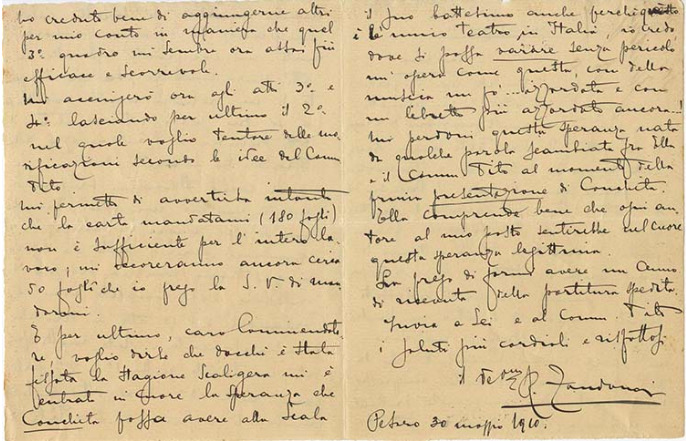 ho creduto bene di aggiungerne altri
per mio conto in maniera che quel
3º quadro mi sembra ora assai più
efficace e scorrevole.
Mi accingerò ora agli atti 3º e
4º lasciando per ultimo il 2º
nel quale voglio tentare delle mo-
dificazioni secondo le idee del Comm
Tito
Mi permetto di avvertirla intanto
che la carta mandatami (180 fogli)
non è sufficiente per l'intero la-
voro; mi occorreranno ancora circa
50 fogli che io prego la S. V. di man-
darmi.
E per ultimo, caro Commendato-
re, voglio dirle che dacchè è stata
fissata la stagione Scaligera mi è
entrata in cuore la speranza che
Conchita possa avere alla Scala
il suo battesimo anche perchè questo
è l'unico teatro in Italia, io credo
dove si possa varare senza pericolo
un'opera come questa, con della
musica un pò... azzardata e con
un libretto più azzardato ancora...!
Mi perdoni questa speranza nata
da qualche parola scambiata fra Ella
e il Comm. Tito al momento della
prima presentazione di Conchita.
Ella comprende bene che ogni au-
tore al mio posto sentirebbe nel cuore
questa speranza legittima.
La prego di farmi avere un cenno
di ricevuta della partitura spedita.
Invio a Lei e al Comm. Tito
i saluti più cordiali e rispettosi
il Dev.mo R. Zandonai
Pesaro 30 maggio 1910.